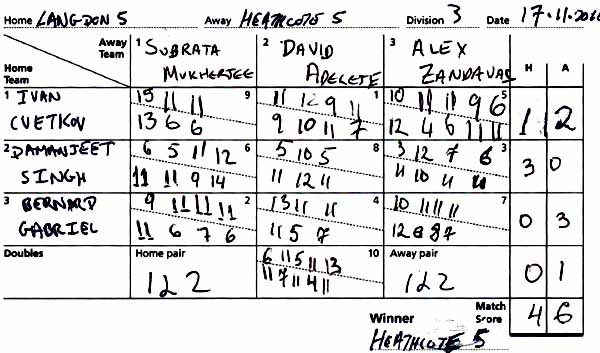 Home LANGDON 5 Away HEATHCOTE 5 Division 3 Date 17.11.20
Away Team 1 SUBRATA 2 DAVID 3 ALEX H A
Home Team MUKHERJEE ADELEYE ZANDAVAR
1 IVAN 15 11 11 9 11 12 9 11 1 10 11 11 9 6 5
CVETKOV 13 6 6 9 10 11 7 12 4 6 11 11 1 2
2 DAMANJEET 6 5 11 12 6 5 10 5 8 3 12 7 6 3
SINGH 11 11 9 14 11 12 11 11 10 11 11 3 0
3 BERNARD 9 11 11 11 2 13 11 11 4 10 11 11 11 7
GABRIEL 11 6 7 6 11 5 7 12 8 8 7 0 3
Doubles Home pair 6 11 5 11 13 10 Away pair
1 & 2 11 7 11 4 11 1 & 2 0 1
Winner Match Score 4 6
HEATHCOTE 5